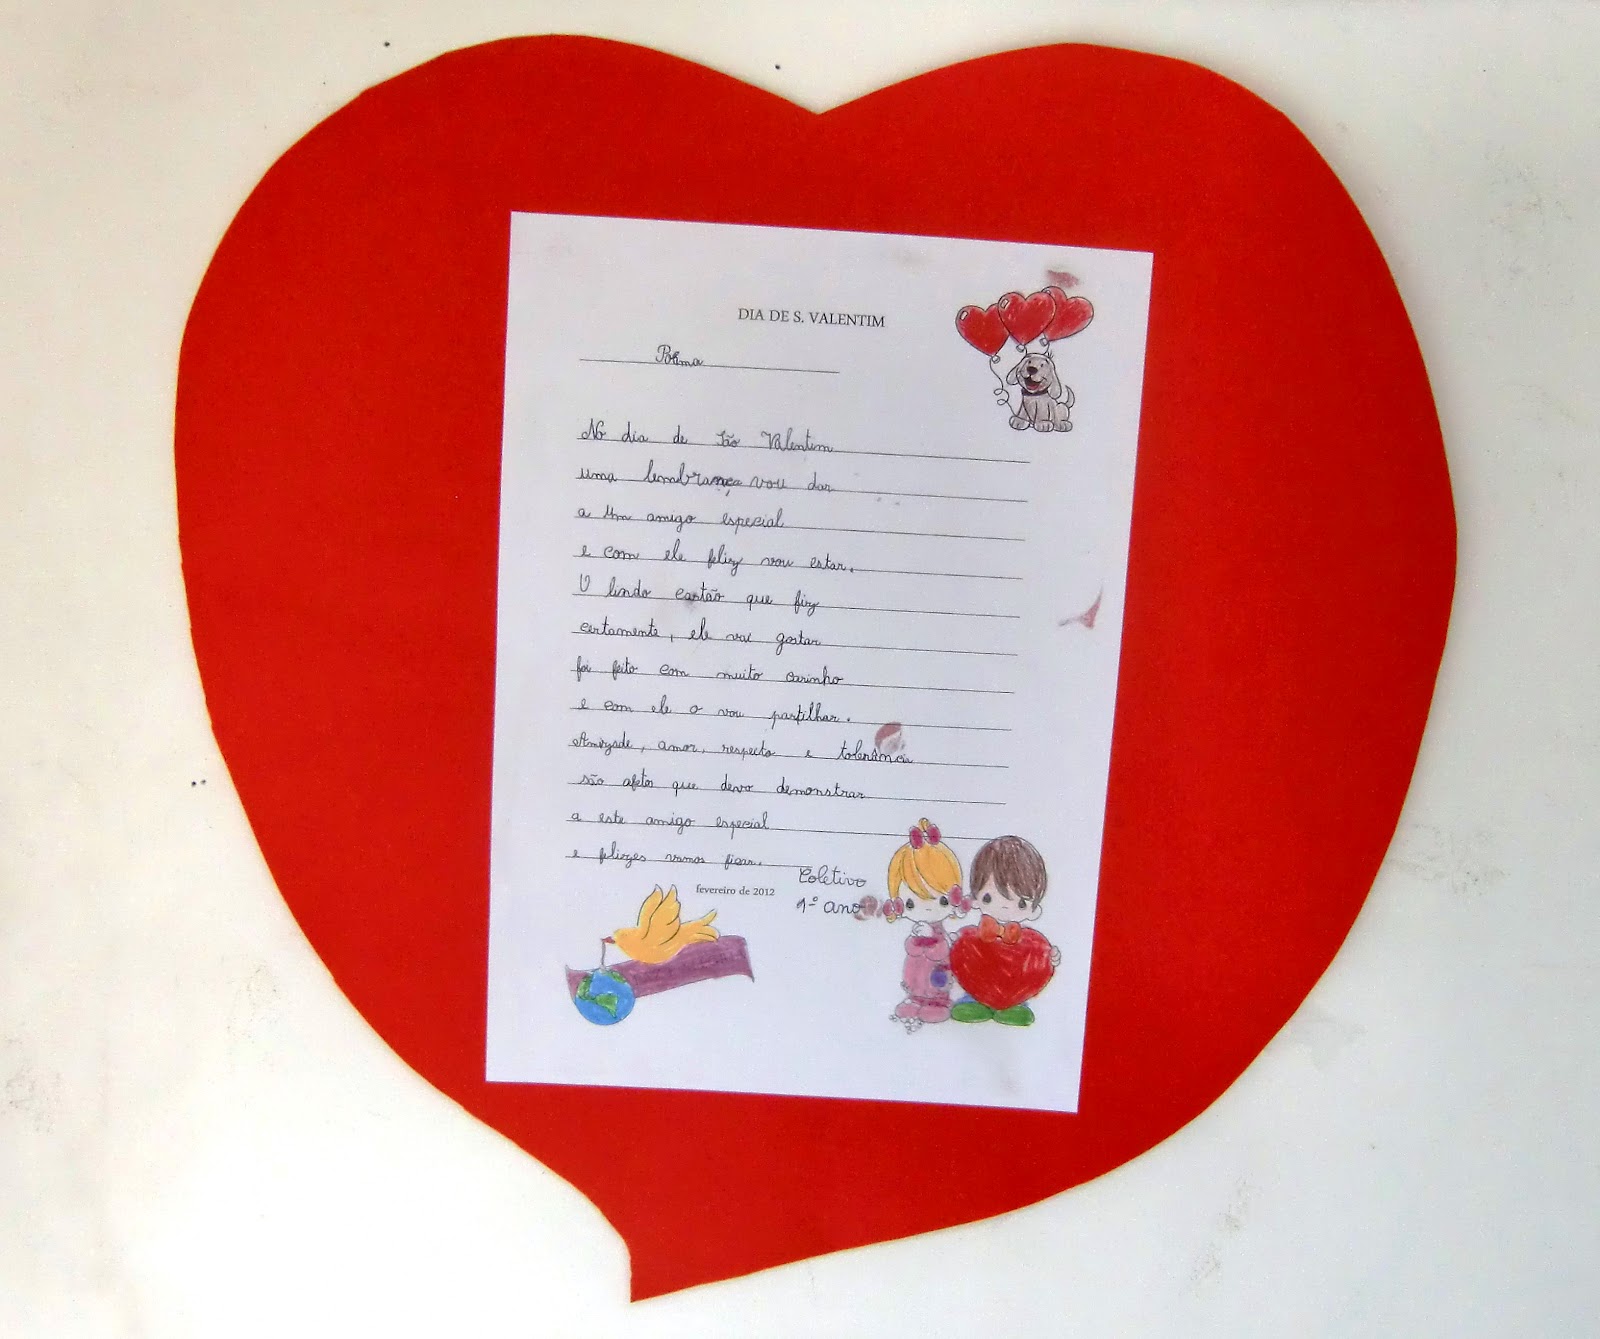 DIA DE S. VALENTIM
Poema
No dia de São Valentim
uma lembrança vou dar
a um amigo especial
e com ele feliz vou estar.
O lindo cartão que fiz
certamente, ele vai gostar
foi feito com muito carinho
e com ele o vou partilhar.
Amizade, amor, respeito e tolerância
são afetos que devo demonstrar
a este amigo especial
e felizes vamos ficar.
Coletivo
fevereiro de 2012
1º ano